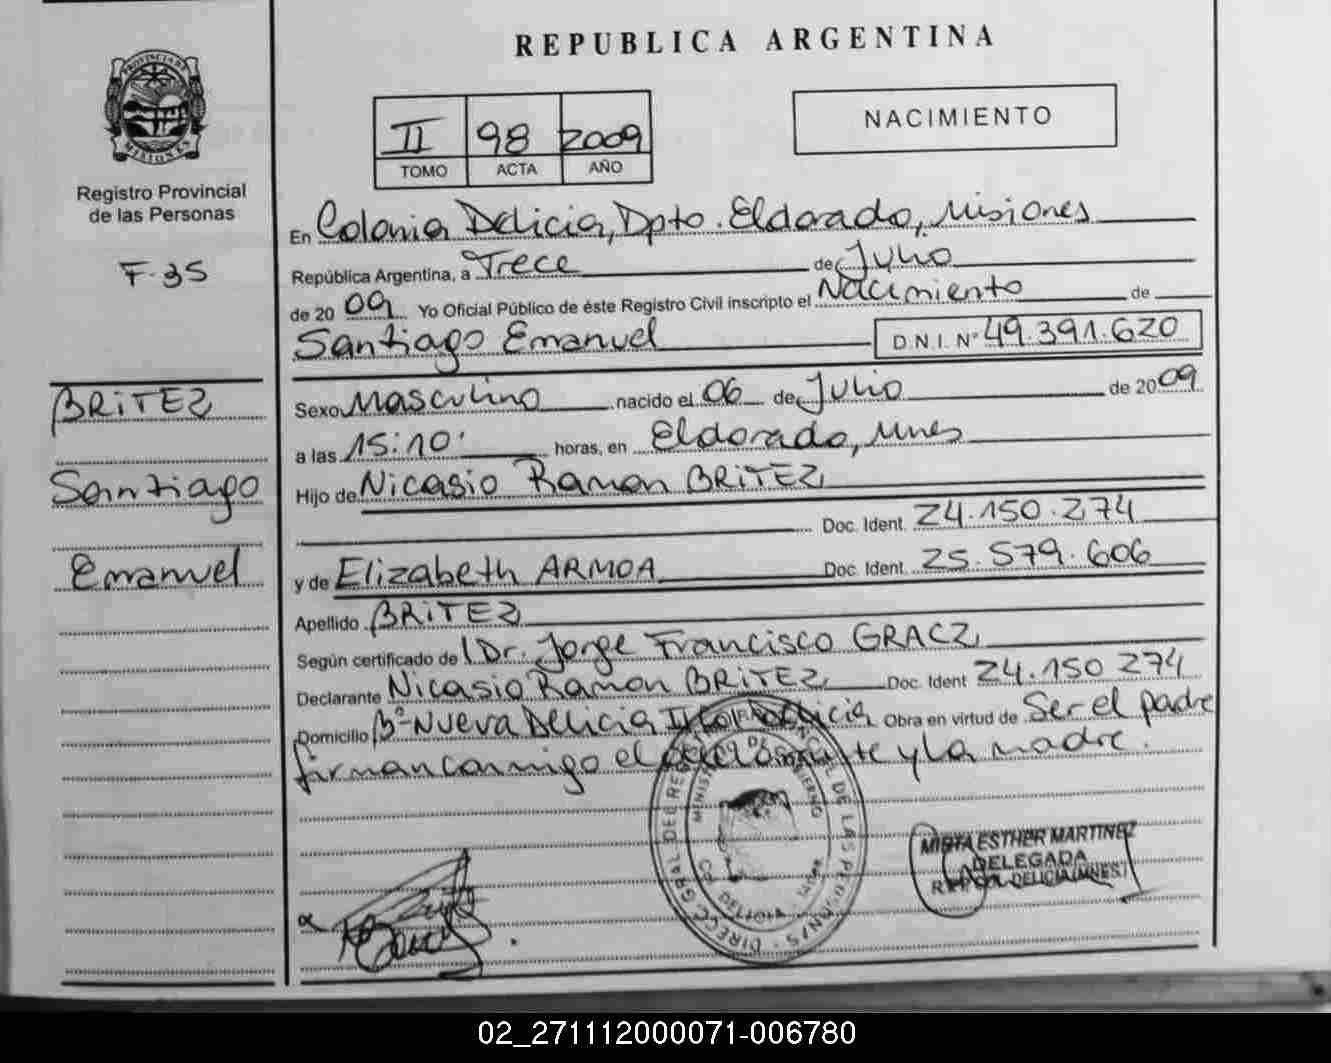 REPUBLICA ARGENTINA
PROVINCIA DE MISIONES
Registro Provincial
de las Personas
F-35
II 98 2009
TOMO ACTA AÑO
NACIMIENTO
En Colonia Delicia, Dpto. Eldorado, Misiones
República Argentina, a Trece de Julio
de 20 09 Yo Oficial Público de éste Registro Civil inscripto el Nacimiento de
Santiago Emanuel D.N.I. Nº 49.391.620
BRITEZ
Santiago
Emanuel
Sexo Masculino nacido el 06 de Julio de 20 09
a las 15:10' horas, en Eldorado, Mnes
Hijo de Nicasio Ramon BRITEZ
Doc. Ident. 24.150.274
y de Elizabeth ARMOA Doc. Ident. 25.579.606
Apellido BRITEZ
Según certificado de Dr. Jorge Francisco GRACZ
Declarante Nicasio Ramon BRITEZ Doc. Ident 24.150 274
Domicilio Bº Nueva Delicia Obra en virtud de Ser el padre
firman conmigo el y la madre.
ESTHER MARTINEZ
DELEGADA
DELICIA (MNES)
02_271112000071-006780